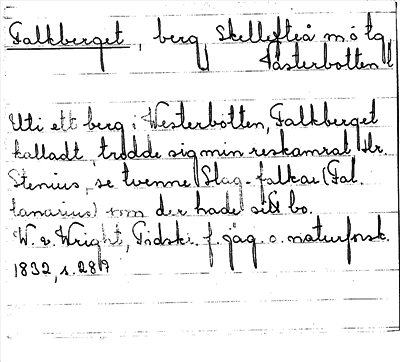 Falkberget, berg, Skellefteå m. o tg,
Västerbotten
Uti ett berg i Westerbotten, Falkberget
kalladt, trodde sig min reskamrat Hr.
Stenius, se tvenne Slag-falkar (Fal.
lanarius) som der hade sitt bo.
W. v. Wright, Tidskr. f. jäg. o. naturforsk.
1832, s. 287